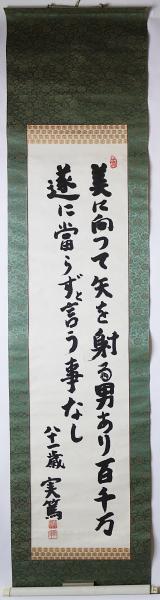 美に向つて矢を射る男あり百千万
遂に當らずと言う事なし
八十一歳 実篤